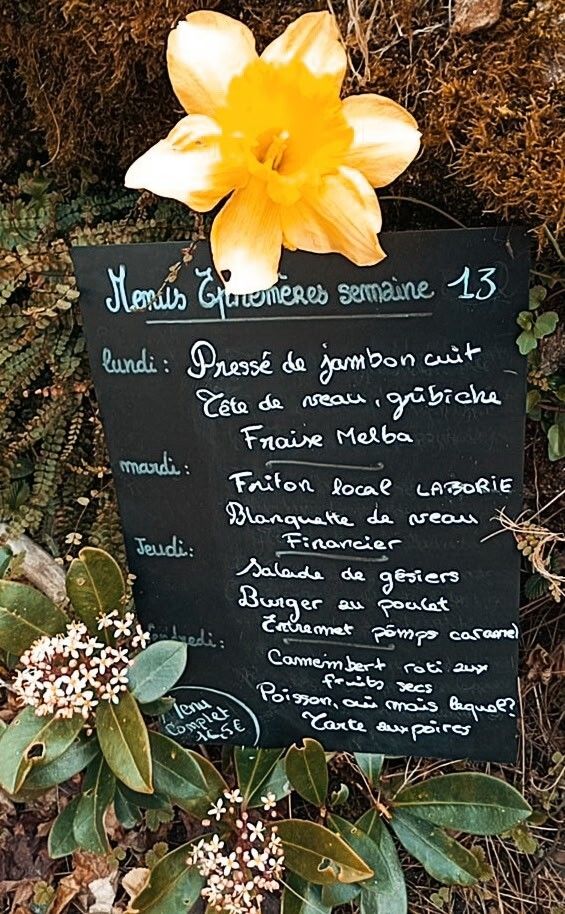 Menus Ephémères semaine 13
lundi : Pressé de jambon cuit
Tête de veau, gribiche
Fraise Melba
mardi : Friton local LABORIE
Blanquette de veau
Financier
Jeudi : Salade de gésiers
Burger au poulet
Entremet caramel
Vendredi : Camembert roti aux
fruits secs
Poisson, oui mais lequel?
Tarte aux poires
Menu
Complet